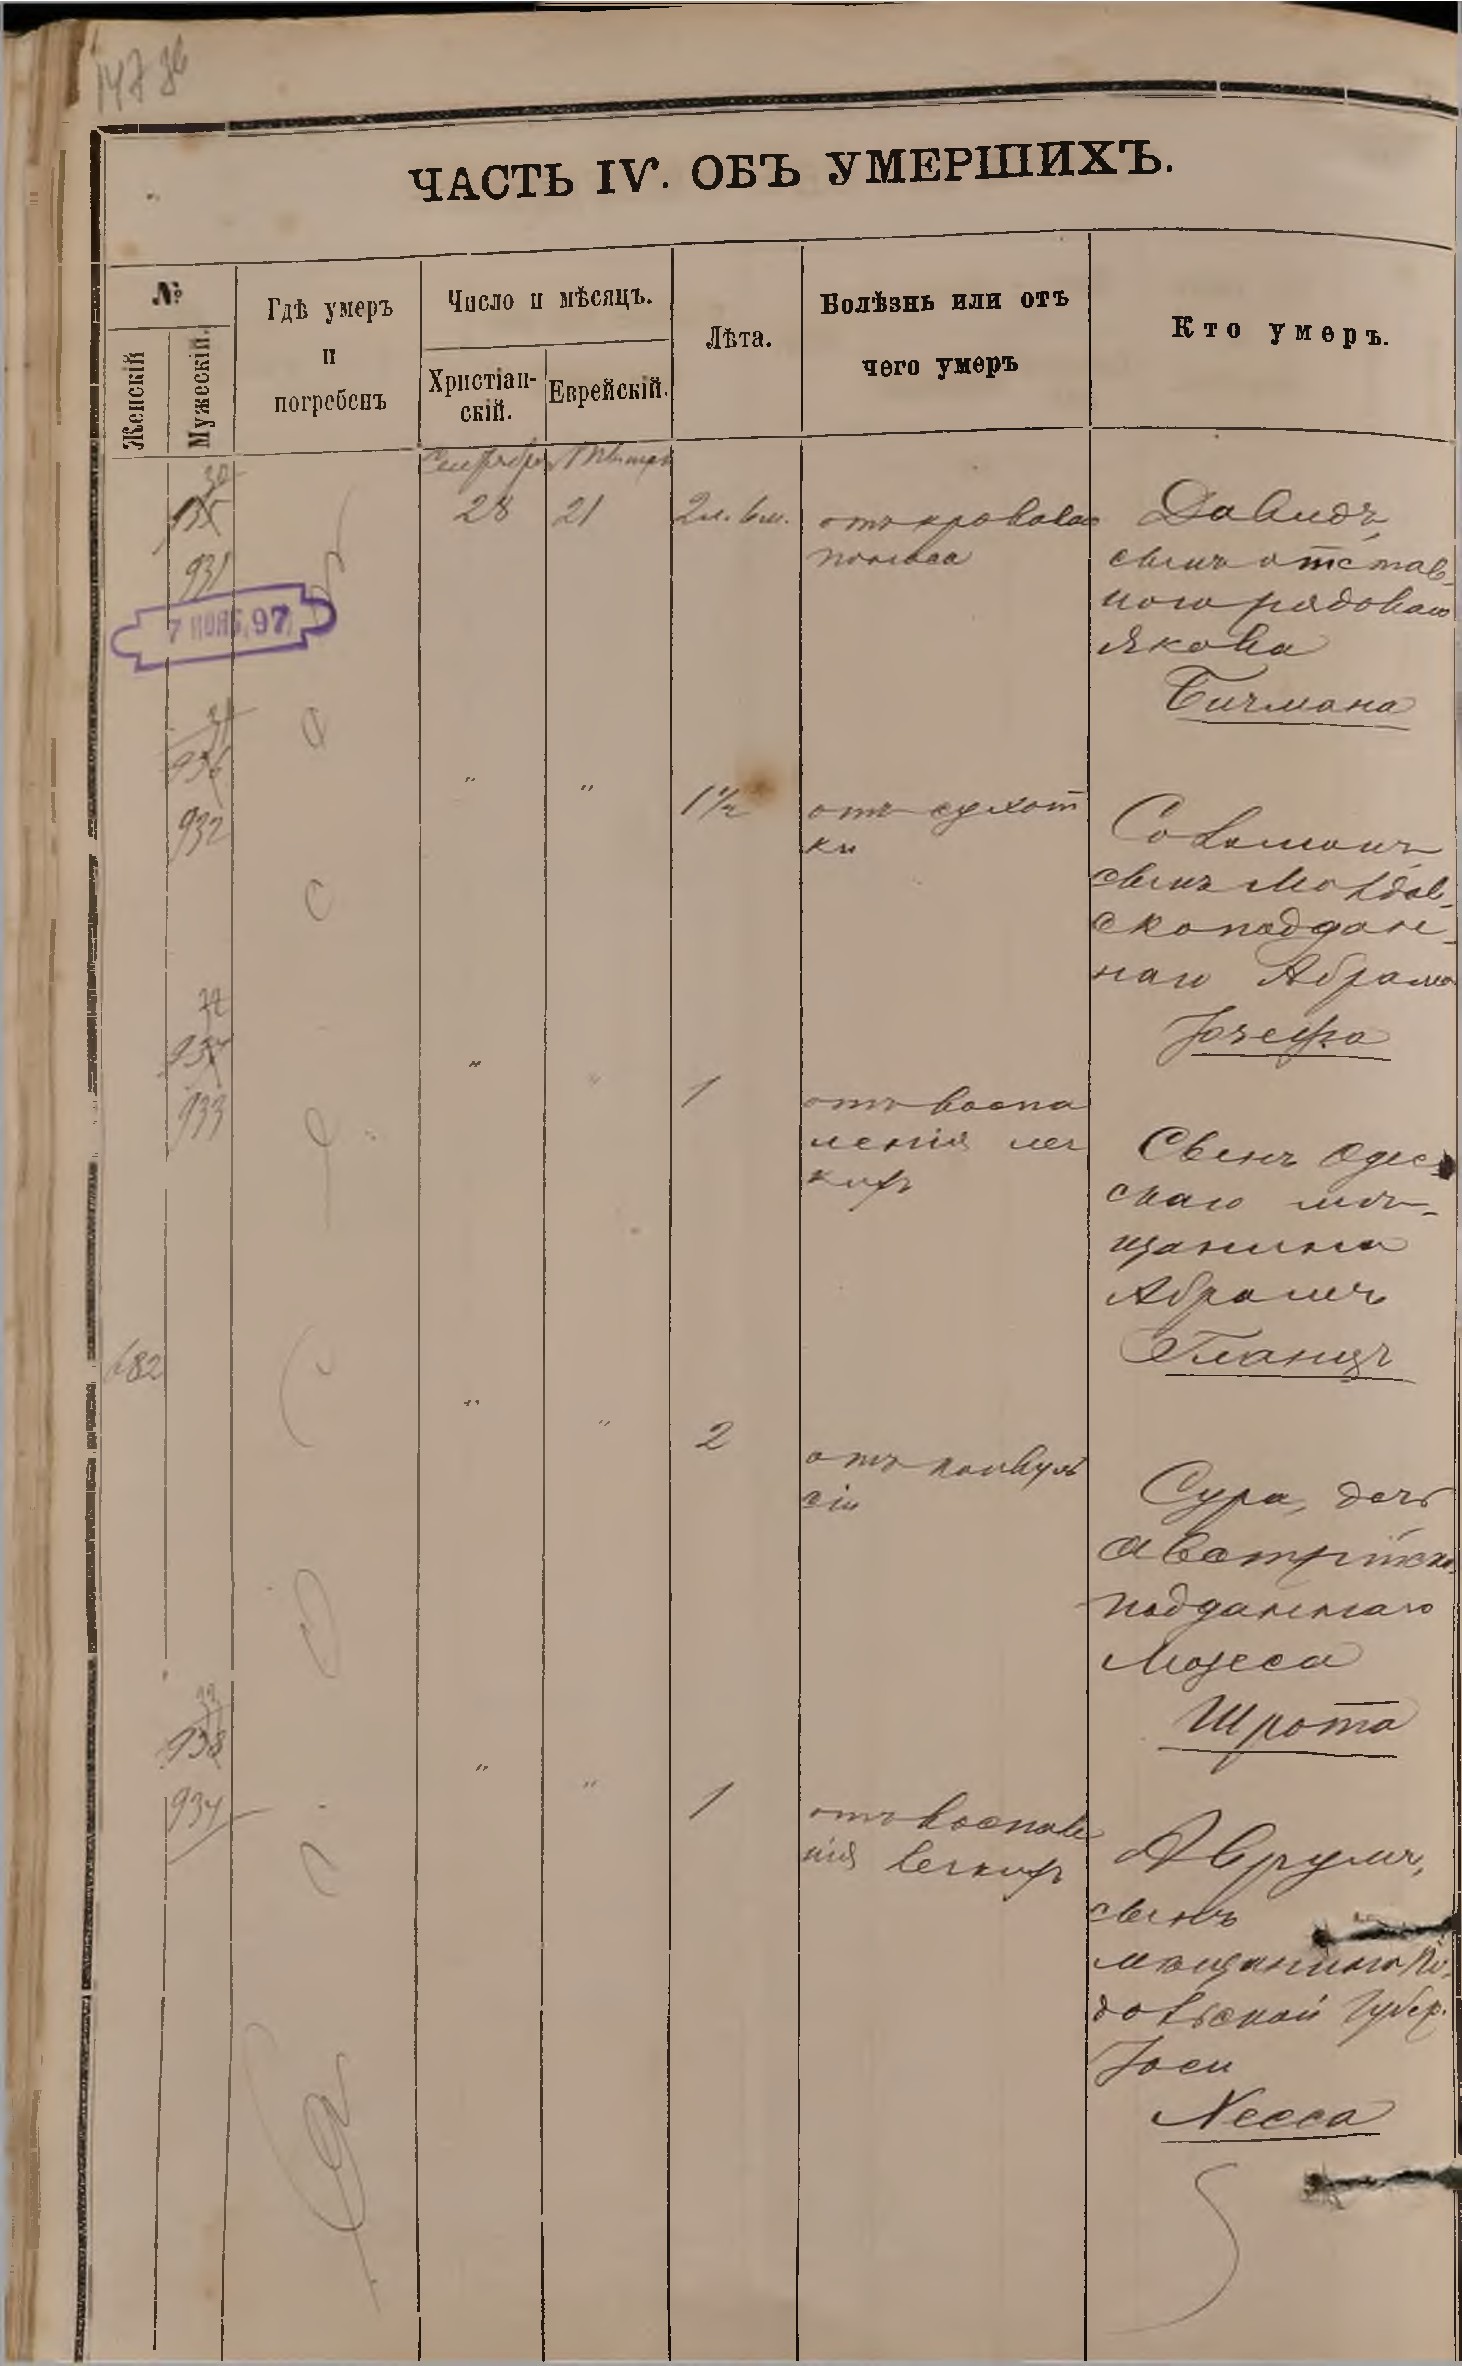 147 об
ЧАСТЬ IV. ОБЪ УМЕРШИХЪ.
№
Женскій
Мужескій.
Гдѣ умеръ
и
погребенъ
Число и мѣсяцъ.
Христіан-
скій.
Еврейскій.
Лѣта.
Болѣзнь или отъ
чего умеръ
Кто умеръ.
30
935
931
7 НОЯБ. 97
28
21
2 л. 6 м.
отъ кроваваго
поноса
Давидъ,
сынъ отстав-
ного рядоваго
Якова
Бичмана
936
932
"
"
1 1/2
отъ сухот
ки
Соломонъ,
сынъ Молдав-
скоподдан-
наго Абрама
Іозефа
937
933
"
"
1
отъ воспа
ленія лег
кихъ
Сынъ Одес
скаго мѣ-
щанина
Абрамъ
Гланцъ
682
"
"
2
отъ конвуль
сіи
Сура, дочь
Австрійско
подданнаго
Мозеса
Шрота
33
938
934
"
"
1
отъ воспале
нія легкихъ
Аврумъ,
сынъ
мѣщанина По-
дольской Губер.
Іоси
Хесса
Одесса